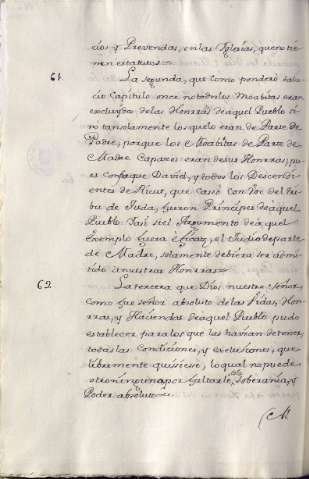 cios y Prevendas, en las Iglesias, que no tie-
nen estatutos.
61. La segunda, que como ponderó
Capitulo once no todos los Moabitas eran
excluydos de las Honrras de aquel Pueblo si
no tan solamente los que lo eran de Parte de
Padre, porque los Moabitas de Parte de
Madre Capazes eran de sus Honrras, pu
es consta que David, y todos los Descendi
entes de Ricut, que casó con Voz del tri
bu de Juda, fueron Principes de aquel
Pueblo. Y así si el Argumento de aquel
Exemplo fuera eficaz, el Judio de parte
de Madre, solamente debiera ser admi
tido a nuestras Honrras.
62. La tercera que Dios nuestro Señor
como fue señor absoluto de las Vidas, Hon
rras, y Haciendas de aquel Pueblo pudo
establecer para los que las havian de tener,
todas las Condiciones, y exclusiones, que
libremente quisiese, lo qual no puede
otro ninguno por faltarle la soberania, y
Poder absoluto.